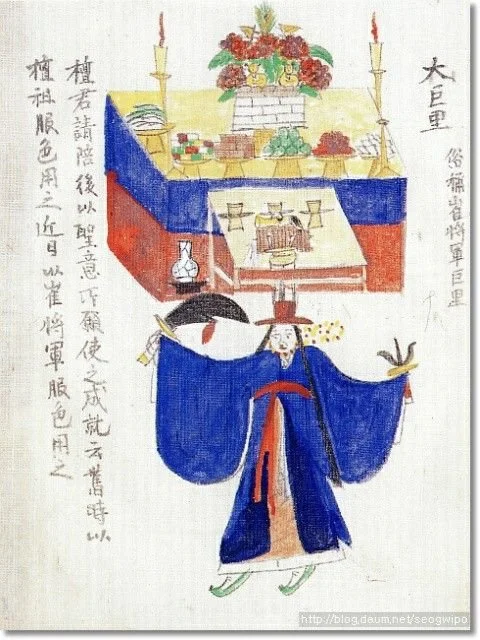 大巨里
俗稱崔將軍巨里
檀君請陪後以聖意所願使之成就云舊時以
檀祖服色用之近日以崔將軍服色用之
http://blog.daum.net/seogwipo